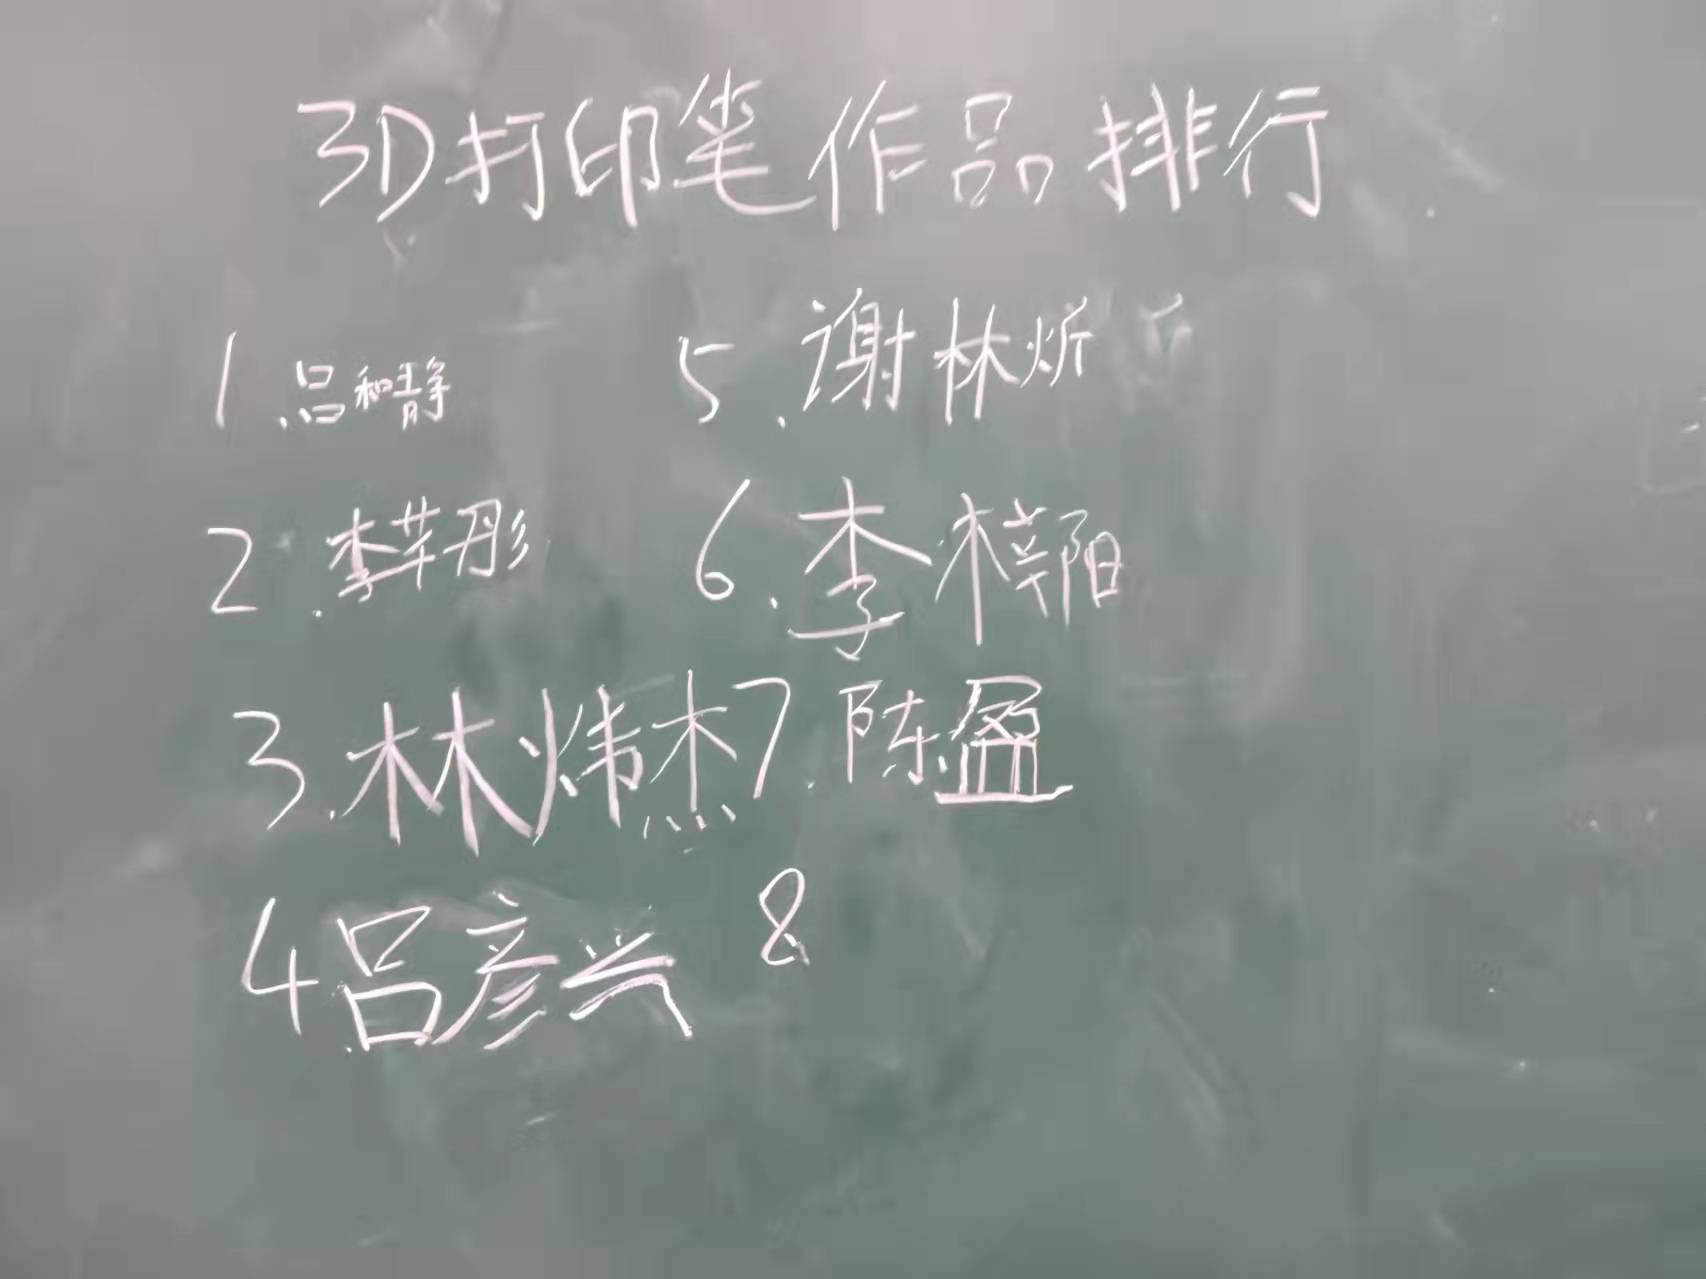 3D打印笔作品排行
1.吕和静
2.李芊彤
3.林炜杰
4吕彦兴
5.谢林炘
6.李梓阳
7.陈盈
8